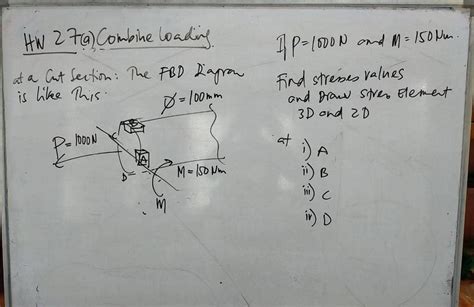 HW 27(a) Combine Loading
at a Cut Section: The FBD Diagram
is like This.
Ø=100mm
P=1000N
A
D
M=150Nm
M
If P=1000N and M=150Nm.
Find stresses values
and Draw stress Element
3D and 2D
at
i) A
ii) B
iii) C
iv) D